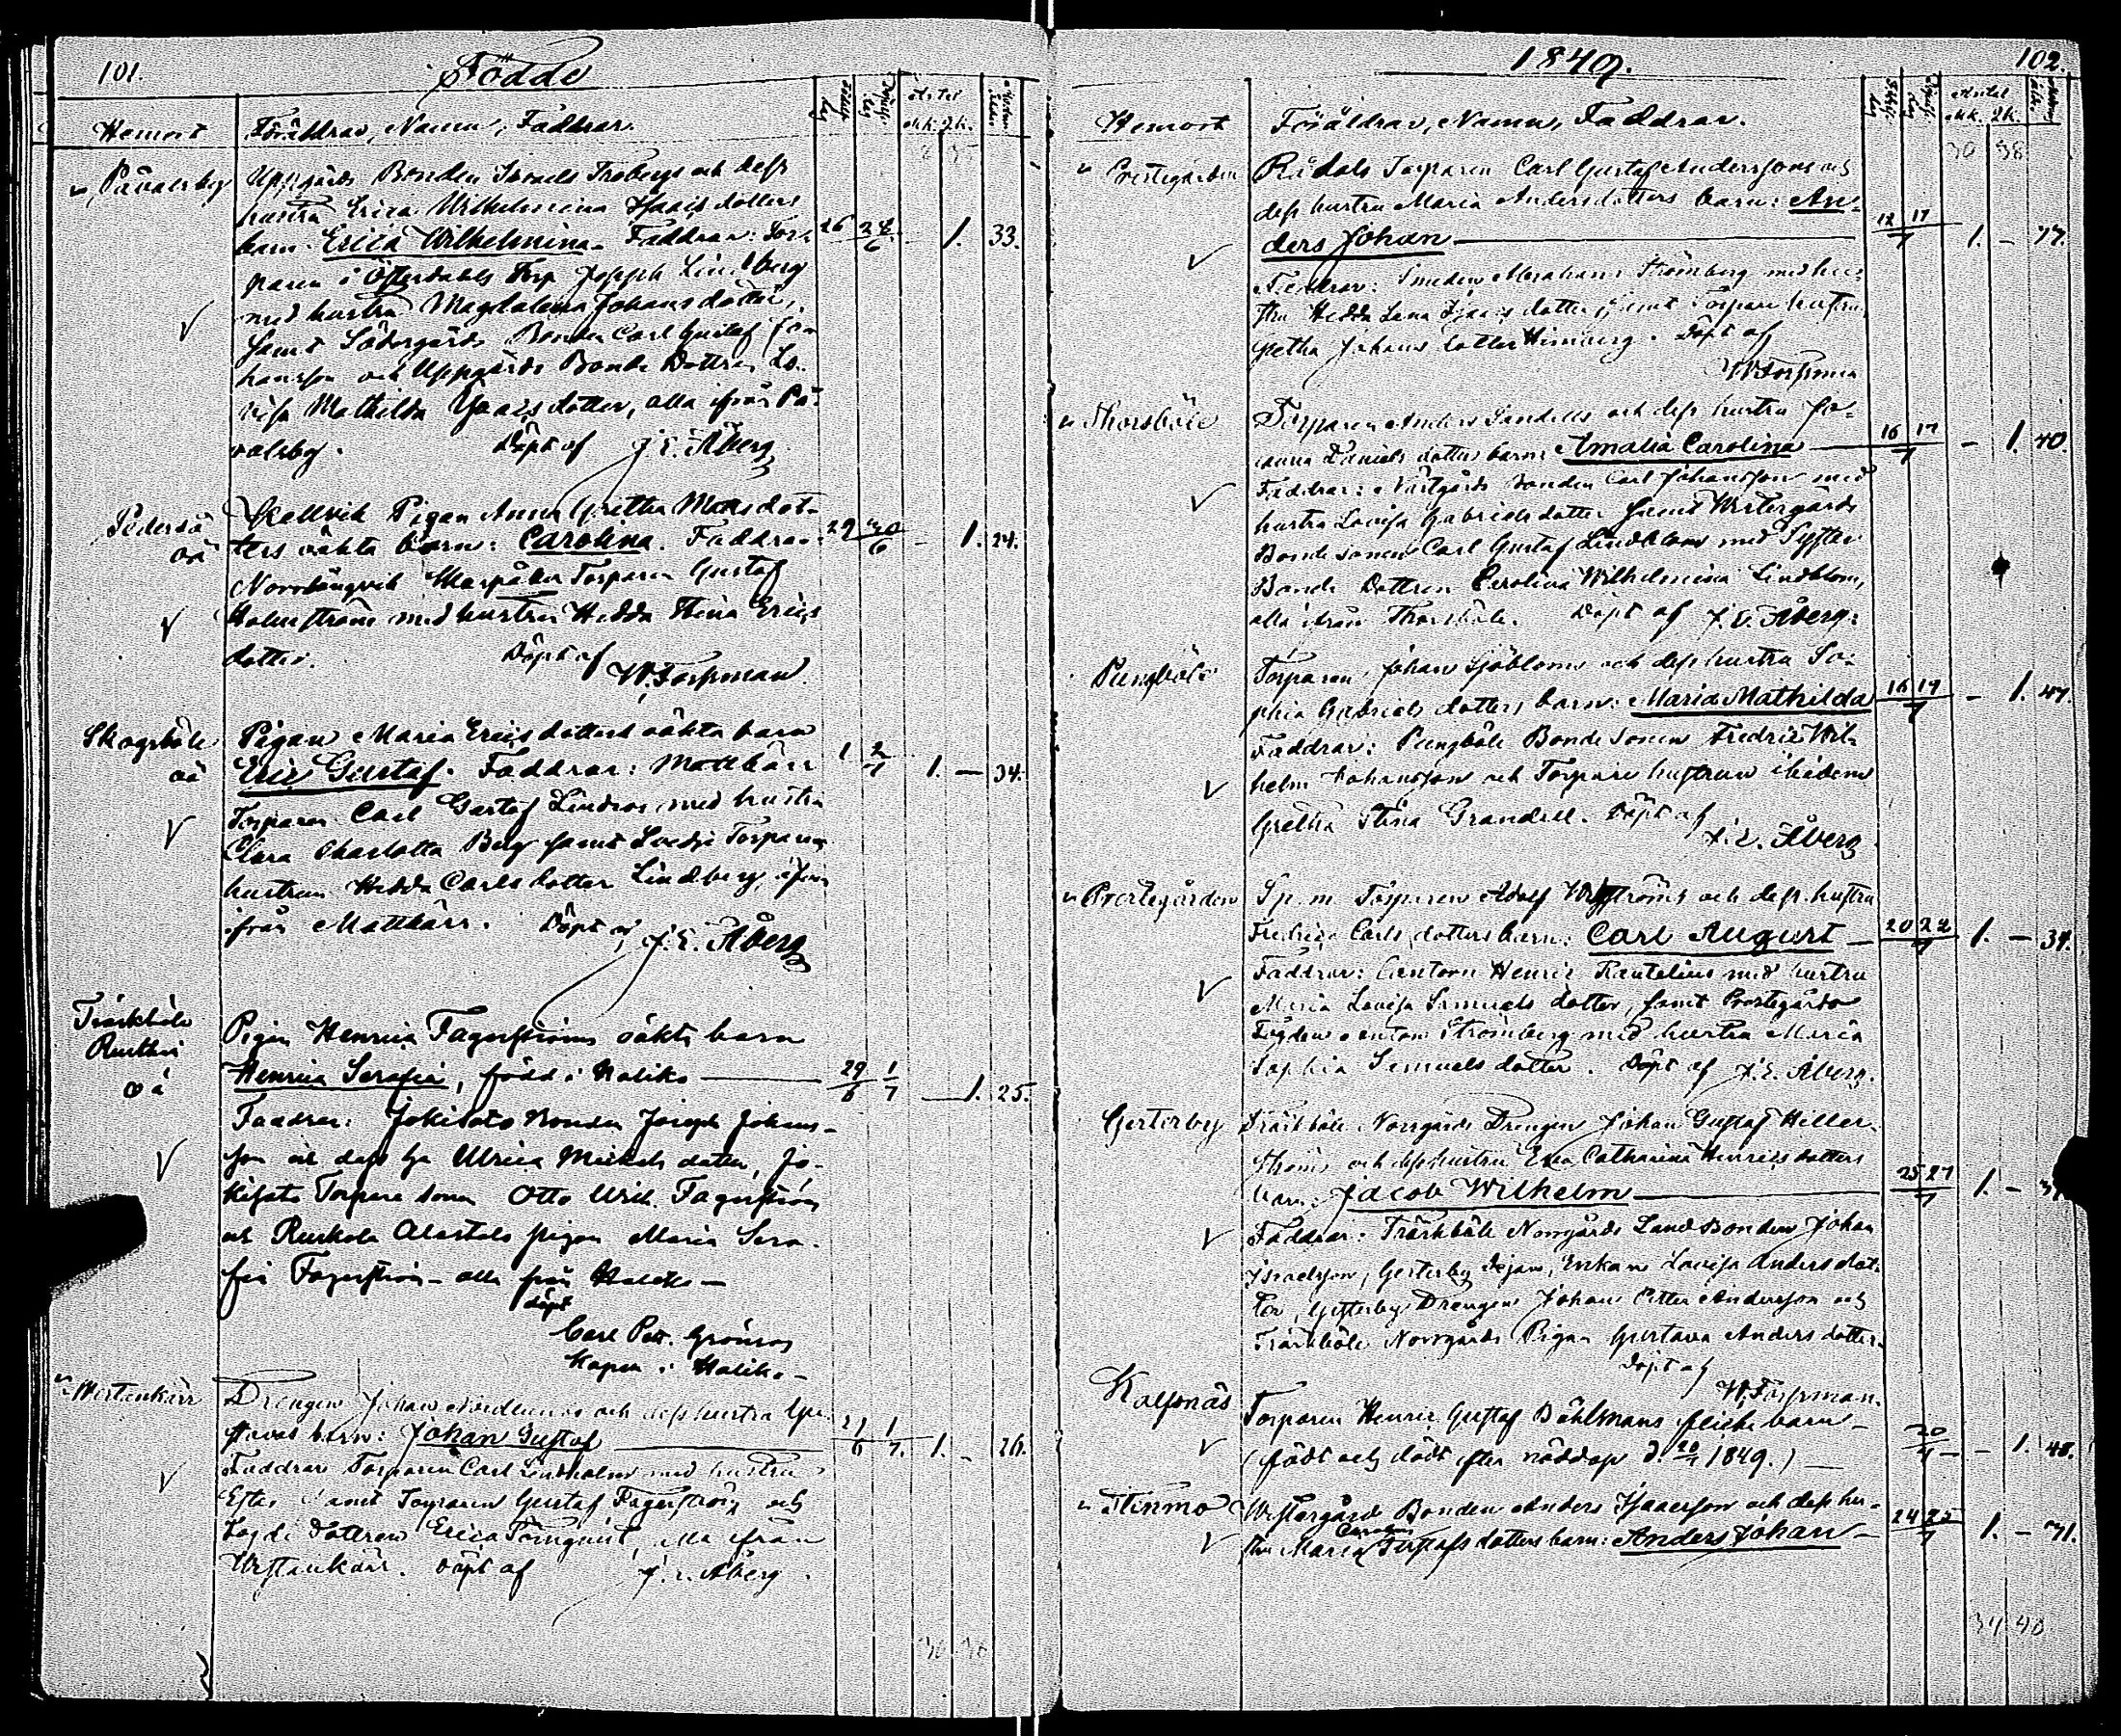 101. Födde
Hemort Föräldrar, Namn, Faddrar.
Påvalsby Uppgårds Bonden Israels Frobergs och dess
hustru Erica Wilhelmina Isaacs dotters
barn: Erica Wilhelmina. Faddrar: Tor- 26 1. 33.
paren i Österdahls Torp Joseph Lindberg
med hustru Magdalena Johans dotter,
samt Södergårds Bonden Carl Gustaf Jo-
hansson och Uppgårds Bonde Dottren Lo-
visa Mathilda Isaacs dotter, alla ifrån På-
valsby. Döpt af J. E. Åberg
Pederså Skallvik Pigan Anna Gretha Mats dot-
oä ters oäkta barn: Carolina. Faddrar: 29 30/6 - 1. 24.
Norrlångvik Torparen Gustaf
Holmström med hustru Hedda Stina Erics
dotter. Döpt af
W. Forssman
Skogsböle Pigan Maria Erics dotters oäkta barn
oä Eric Gustaf. Faddrar: Mattkärr 1 2/7 1. — 34.
Torparen Carl Gustaf Lindroos med hustru
Clara Charlotta Berg samt Svedje Torpare
hustrun Hedda Carls dotter Lindberg, äfven
ifrån Mattkärr. Döpt af J. E. Åberg
Träskböle
Rusthåll Pigan Henrica Fagerströms oäkta barn
oä Henrica Serafia, född i Haliko — 29/6 1/7 1. 25.
Faddrar: Jokisato Bonden Joseph Johans-
son och dess h. Ulrica Mickels dotter, Jo-
kisato Torpare sonen Otto Wilh. Fagerström
och Ruskola Alastalo pigan Maria Sera-
fia Fagerström — alla från Haliko —
döpt
Carl Pett. Grönros
Kapen i Haliko —
Westankärr Drengen Johan och dess hustru Gu-
stavas barn: Johan Gustaf 27/6 1/7. 1. - 26.
Faddrar Torparen Carl Lindholm med hustru
Ester samt Torparen Gustaf Fagerström och
Dottren Erica Törnquist, alla ifrån
Westankärr. Döpt af J. E. Åberg.
1849. 102.
Hemort Föräldrar, Namn, Faddrar.
30 38
Prestegården Rådals Torparen Carl Gustaf Anderssons och
dess hustru Maria Anders dotters barn: An-
ders Johan — 12 17/7 1. -
Faddrar: Smeden Abraham Strömberg med hu-
stru Hedda Lena Isaacs dotter, samt Torpare hustru
Gretha Johans dotter . Döpt af
W. Forssman
Thorsböle Torparen Anders Sandells och dess hustru Jo-
hanna Daniels dotters barn: Amalia Carolina — 16 17/7 - 1. 40.
Faddrar: Wästgårds Bonden Carl Johansson med
hustru Lovisa Gabriels dotter samt Westergårds
Bonde sonen Carl Gustaf Lindblom med Syster
Bonde Dottren Carolina Wilhelmina Lindblom,
alla ifrån Thorsböle. Döpt af J. E. Åberg.
Pungböle Torparen Johan Sjöbloms och dess hustru So-
phia Gabriels dotters barn: Maria Mathilda 16 19/7 - 1. 47.
Faddrar: Pungböle Bonde sonen Fredric Wil-
helm Johansson och Torpare hustrun ibidem
Gretha Stina Grandell. Döpt af
J. E. Åberg
Prestegården Torparen Adolf och dess hustru
Fredrica Carls dotters barn: Carl August — 20 22/7 1. — 34.
Faddrar: Cantorn Henric Rautelius med hustru
Maria Lovisa Samuels dotter, samt Prestegårds
Fogden Anton Strömberg med hustru Maria
Sophia Samuels dotter. Döpt af J. E. Åberg.
Gesterby Träskböle Norrgårds Drengen Johan Gustaf Heller-
ströms och dess hustru Eva Catharina Henrics dotters
barn: Jacob Wilhelm — 25 27/7 1. -
Faddrar: Träskböle Norrgårds Landbonden Johan
Israelsson, Gesterby Dejan, Enkan Lovisa Anders dot-
ter, Gesterby Drengen Johan Petter Andersson och
Träskböle Norrgårds Pigan Gustava Anders dotter.
Döpt af
W. Forssman.
Kalfsnäs Torparen Henric Gustaf Båhlmans flicke barn —
(född och död efter nöddop d. 20/7 1849.) — 20/7 - 1. 48.
Stenmo Westergård Bonden Anders Isaacsson och dess hu-
stru Maria Carolina Gustafs dotters barn: Anders Johan — 24 25/7 1. - 31.
34 40